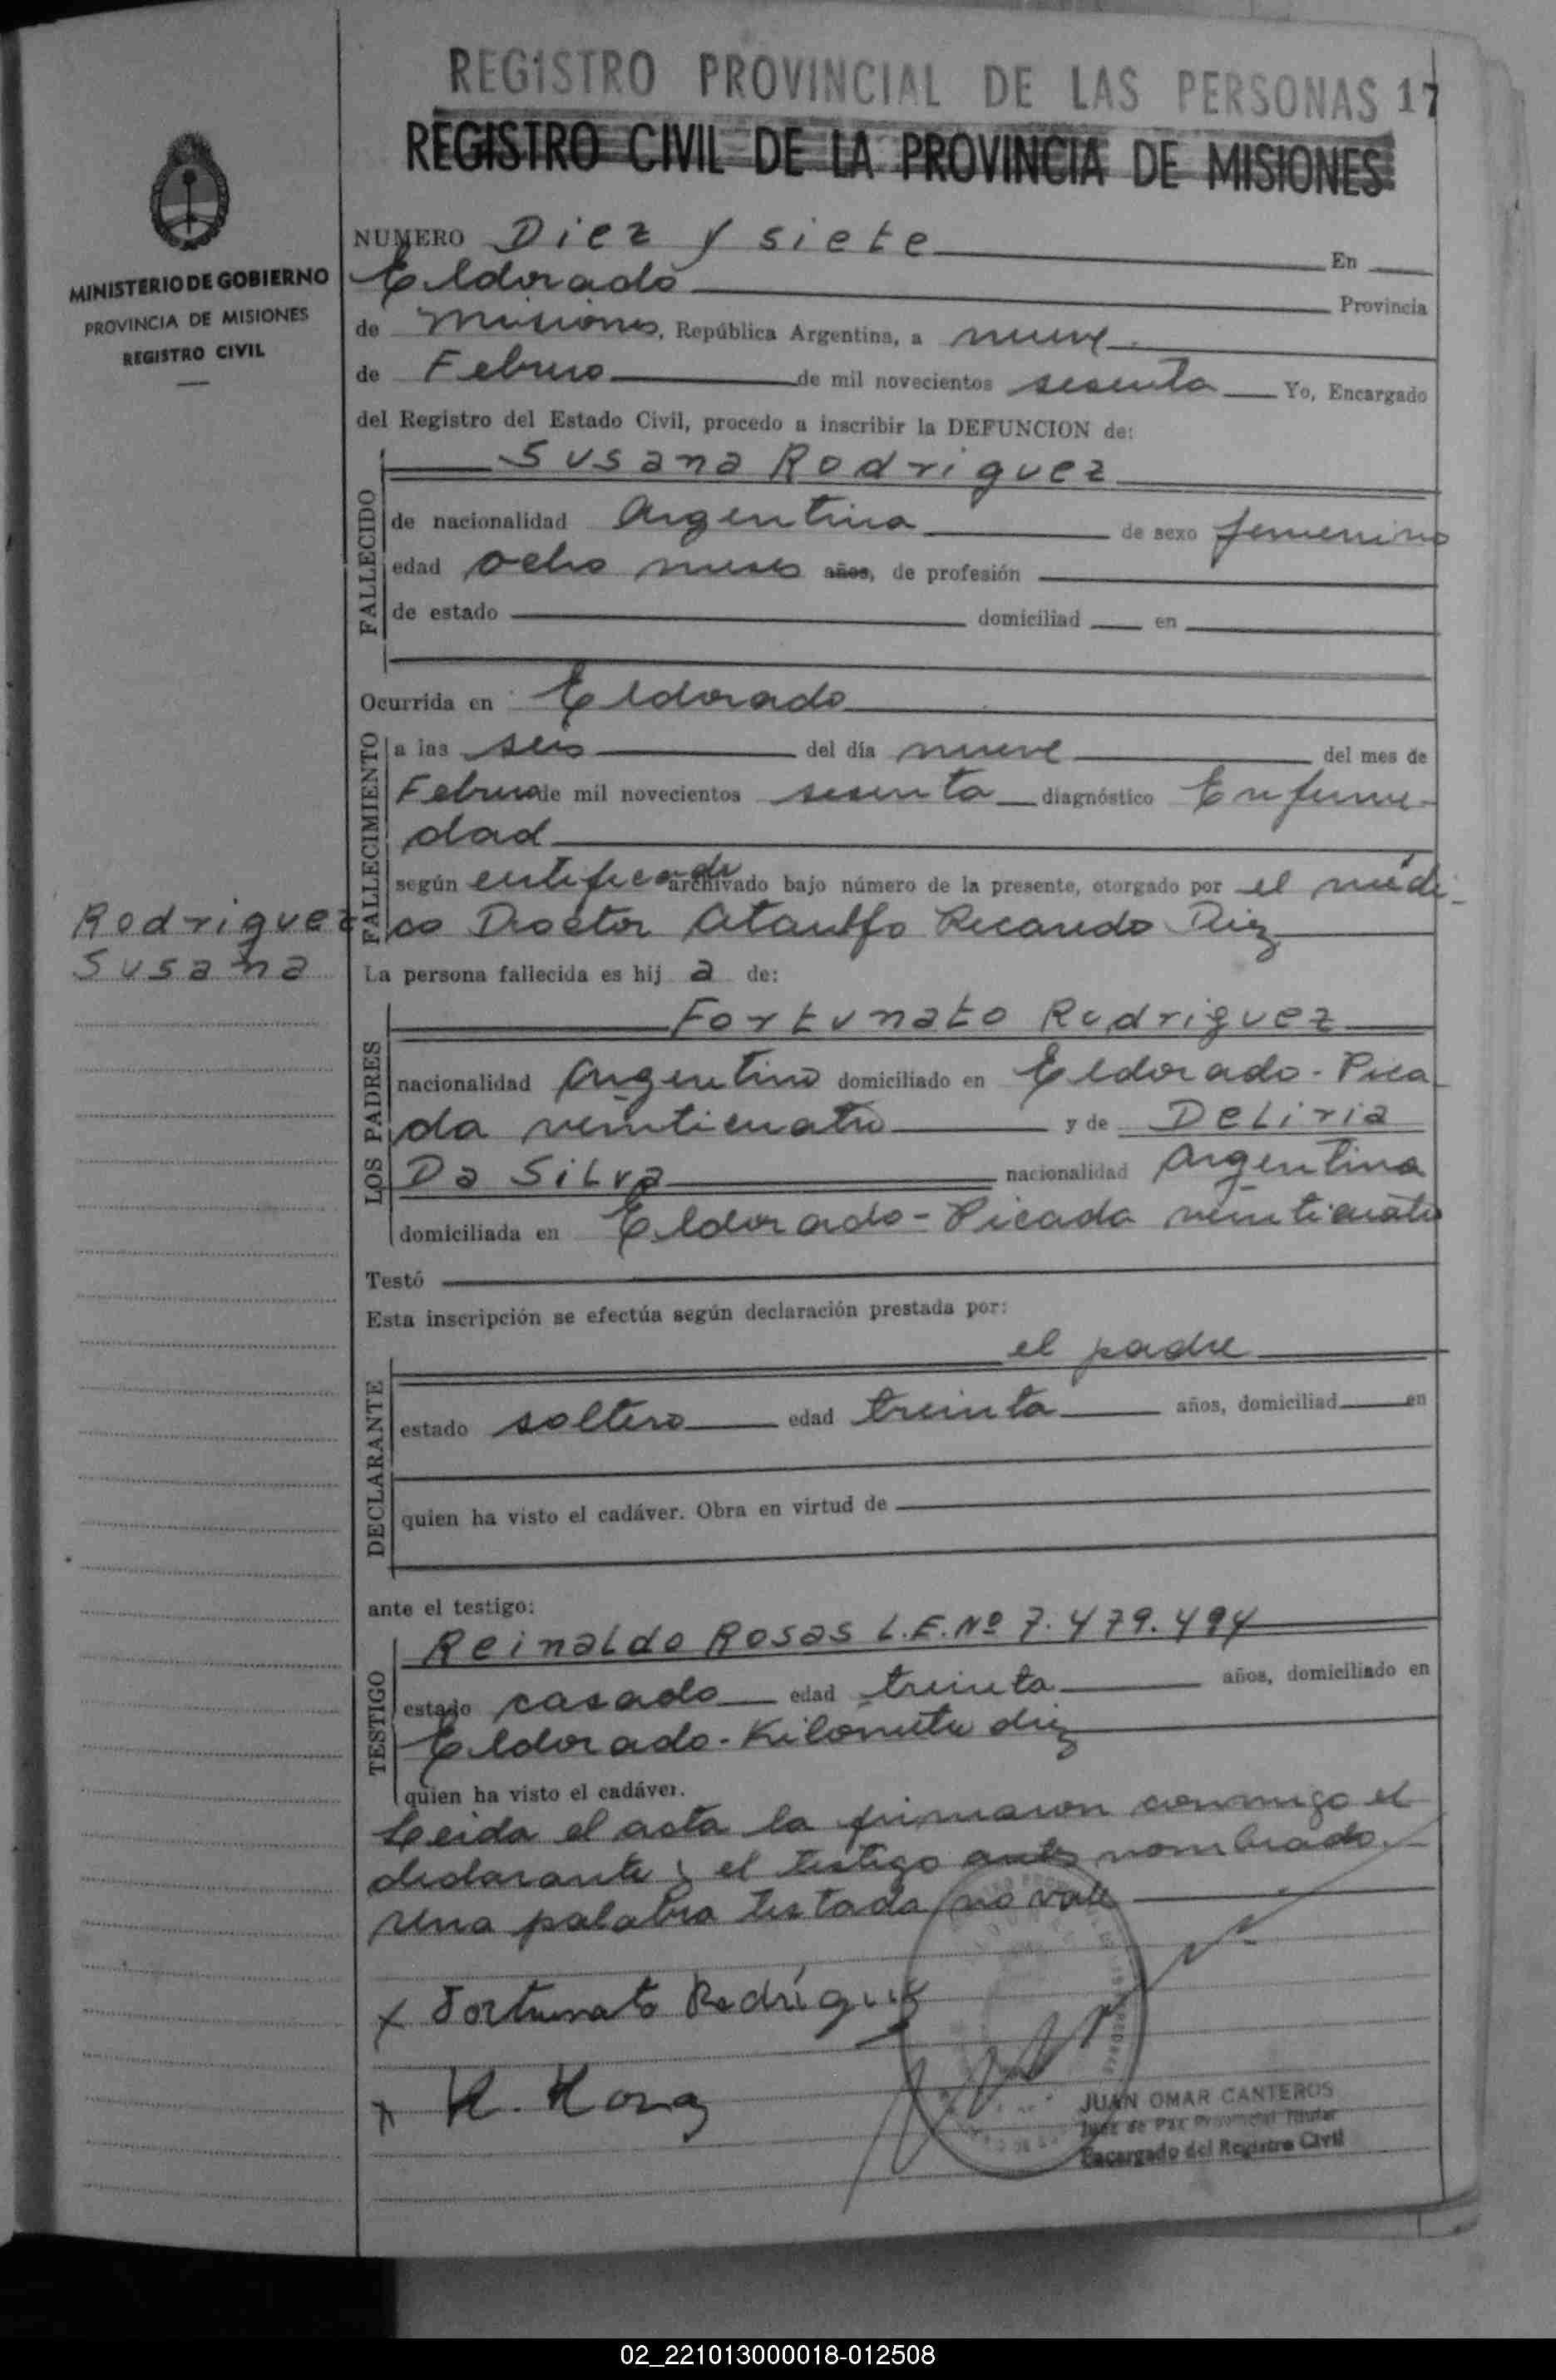 REGISTRO PROVINCIAL DE LAS PERSONAS 17
REGISTRO CIVIL DE LA PROVINCIA DE MISIONES
MINISTERIO DE GOBIERNO
PROVINCIA DE MISIONES
REGISTRO CIVIL
NUMERO Diez y siete En
Eldorado Provincia
de Misiones, República Argentina, a nueve
de Febrero de mil novecientos sesenta Yo, Encargado
del Registro del Estado Civil, procedo a inscribir la DEFUNCION de:
FALLECIDO
Susana Rodriguez
de nacionalidad Argentina de sexo femenino
edad ocho meses años, de profesión
de estado domiciliad en
Ocurrida en Eldorado
FALLECIMIENTO
a las seis del día nueve del mes de
Febrero de mil novecientos sesenta diagnóstico Enferme-
dad
según certificado archivado bajo número de la presente, otorgado por el médi-
co Doctor Ataulfo Ricardo Diez
Rodriguez
Susana
La persona fallecida es hij a de:
LOS PADRES
Fortunato Rodriguez
nacionalidad Argentino domiciliado en Eldorado - Pica
da veinticuatro y de Deliria
Da Silva nacionalidad Argentina
domiciliada en Eldorado - Picada veinticuatro
Testó
Esta inscripción se efectúa según declaración prestada por:
DECLARANTE
el padre
estado soltero edad treinta años, domiciliad en
quien ha visto el cadáver. Obra en virtud de
ante el testigo:
TESTIGO
Reinaldo Rosas L.E. Nº 7.479.494
estado casado edad treinta años, domiciliado en
Eldorado - Kilometro diez
quien ha visto el cadáver.
Leida el acta la firmaron conmigo el
declarante y el testigo antes nombrado.
Una palabra testada no vale
x Fortunato Rodríguez
x
JUAN OMAR CANTEROS
Juez de Paz Provincial Titular
Encargado del Registro Civil
02_221013000018-012508